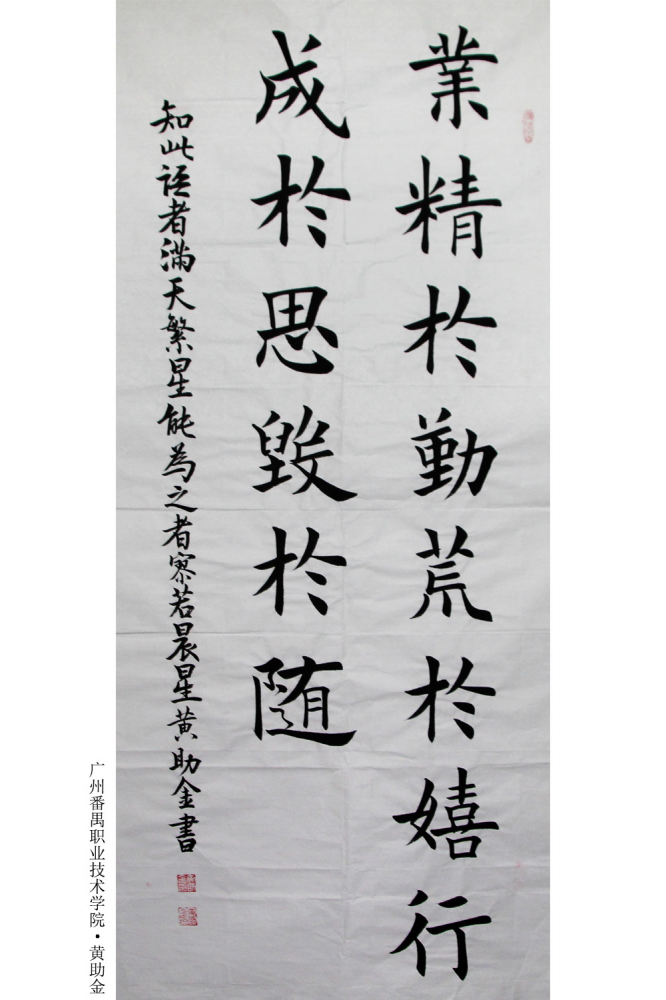 業精於勤荒於嬉行
成於思毀於随
知此语者满天繁星能為之者寥若晨星黄助金書
广州番禺职业技术学院·黄助金